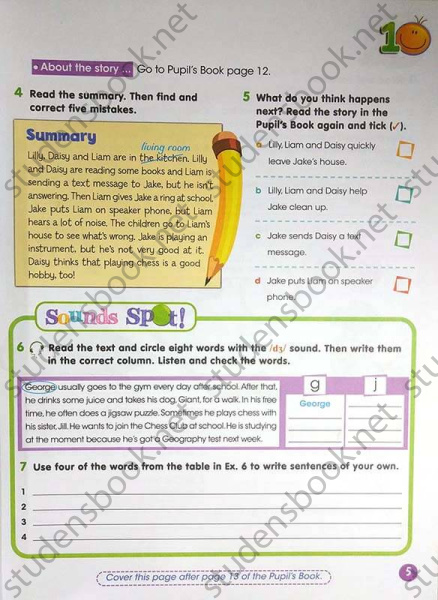 10
• About the story ... Go to Pupil's Book page 12.
4 Read the summary. Then find and
correct five mistakes.
Summary
living room
Lilly, Daisy and Liam are in the kitchen. Lilly
and Daisy are reading some books and Liam is
sending a text message to Jake, but he isn't
answering. Then Liam gives Jake a ring at school.
Jake puts Liam on speaker phone, but Liam
hears a lot of noise. The children go to Liam's
house to see what's wrong. Jake is playing an
instrument, but he's not very good at it.
Daisy thinks that playing chess is a good
hobby, too!
5 What do you think happens
next? Read the story in the
Pupil's Book again and tick (✓).
a Lilly, Liam and Daisy quickly
leave Jake's house.
b Lilly, Liam and Daisy help
Jake clean up.
c Jake sends Daisy a text
message.
d Jake puts Liam on speaker
phone.
Sounds Spot!
6 Read the text and circle eight words with the /dʒ/ sound. Then write them
in the correct column. Listen and check the words.
George usually goes to the gym every day after school. After that,
he drinks some juice and takes his dog, Giant, for a walk. In his free
time, he often does a jigsaw puzzle. Sometimes he plays chess with
his sister, Jill. He wants to join the Chess Club at school. He is studying
at the moment because he's got a Geography test next week.
g j
George
7 Use four of the words from the table in Ex. 6 to write sentences of your own.
1
2
3
4
Cover this page after page 13 of the Pupil's Book.
5
studensbook.net